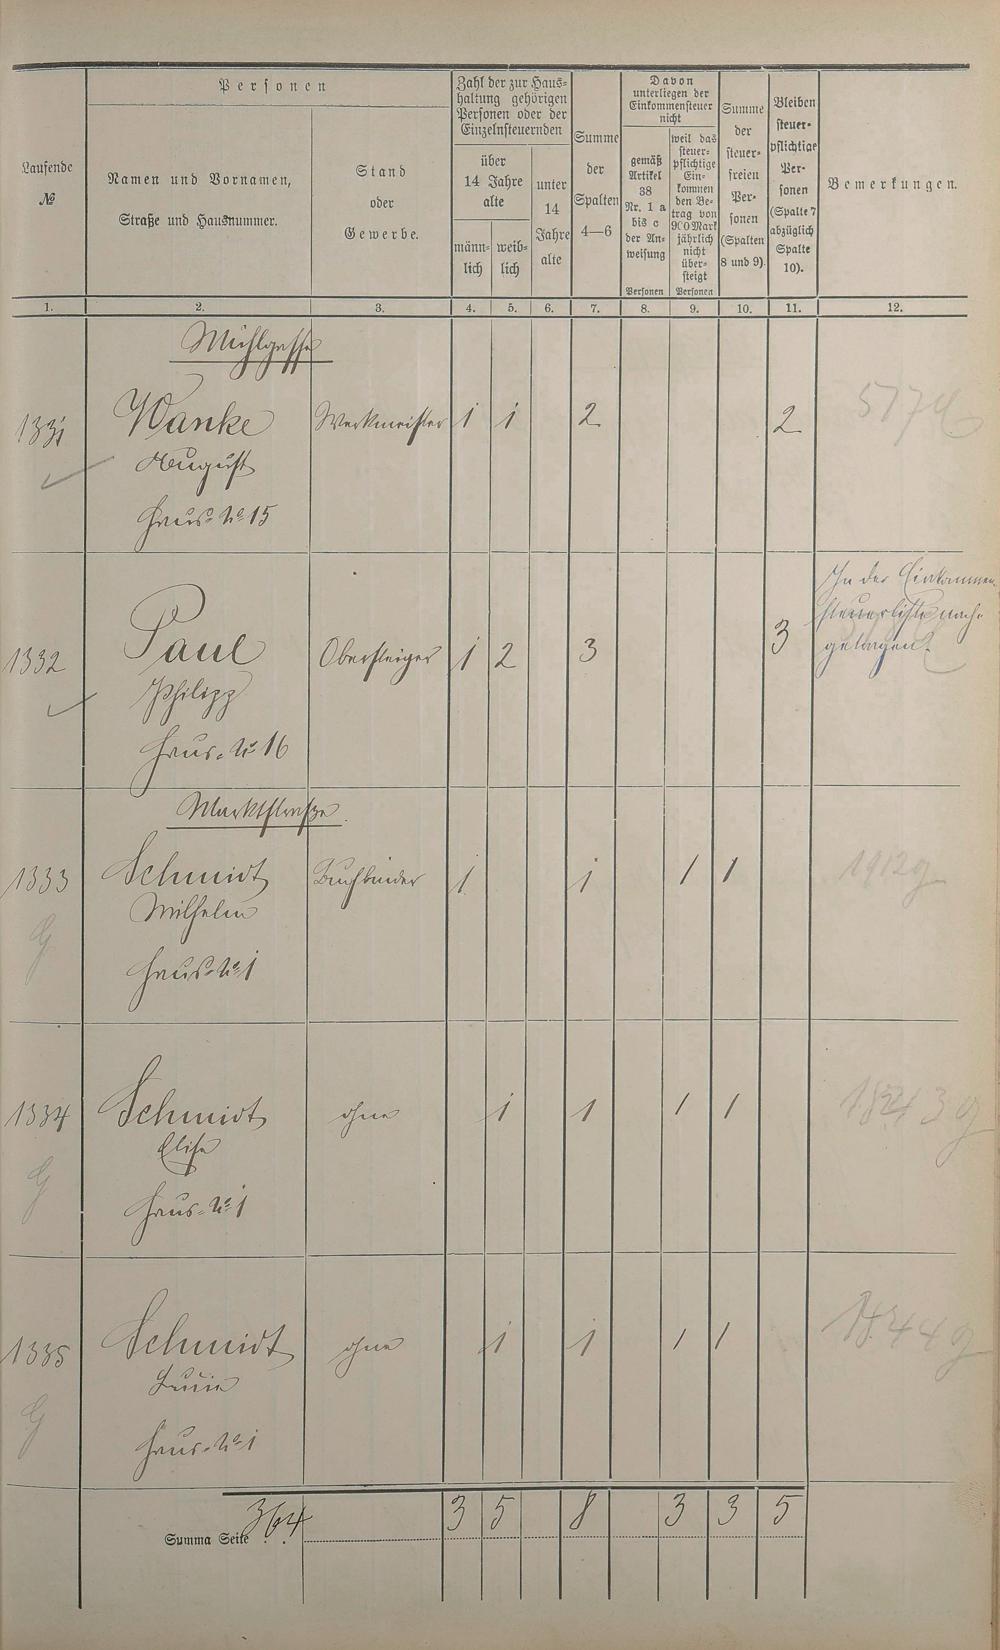 Laufende
№
Personen
Namen und Vornamen,
Straße und Hausnummer.
Stand
oder
Gewerbe.
Zahl der zur Haus-
haltung gehörigen
Personen oder der
Einzelnsteuernden
über
14 Jahre
alte
männ-
lich
weib-
lich
unter
14
Jahre
alte
Summe
der
Spalten
4—6
Davon
unterliegen der
Einkommensteuer
nicht
gemäß
Artikel
38
Nr. 1 a
bis c
der An-
weisung
Personen
weil das
steuer-
pflichtige
Ein-
kommen
den Be-
trag von
900 Mark
jährlich
nicht
über-
steigt
Personen
Summe
der
steuer-
freien
Per-
sonen
(Spalten
8 und 9).
Bleiben
steuer-
pflichtige
Per-
sonen
(Spalte 7
abzüglich
Spalte
10).
Bemerkungen.
1. 2. 3. 4. 5. 6. 7. 8. 9. 10. 11. 12.
Mühlgasse
1331 Wanke Werkmeister 1 1 2 2
August
Haus-No 15
1332 Paul Obersteiger 1 2 3 3 In der Einkommen-
steuerliste nach-
getragen.
Philipp
Haus-No 16
Marktstraße
1333 Schmidt Buchbinder 1 1 1 1 1912 g
Wilhelm
G
Haus-No 1
1334 Schmidt ohne 1 1 1 1
Elise
G
Haus-No 1
1335 Schmidt ohne 1 1 1 1
Luise
G
Haus-No 1
Summa Seite 364 3 5 8 3 3 5